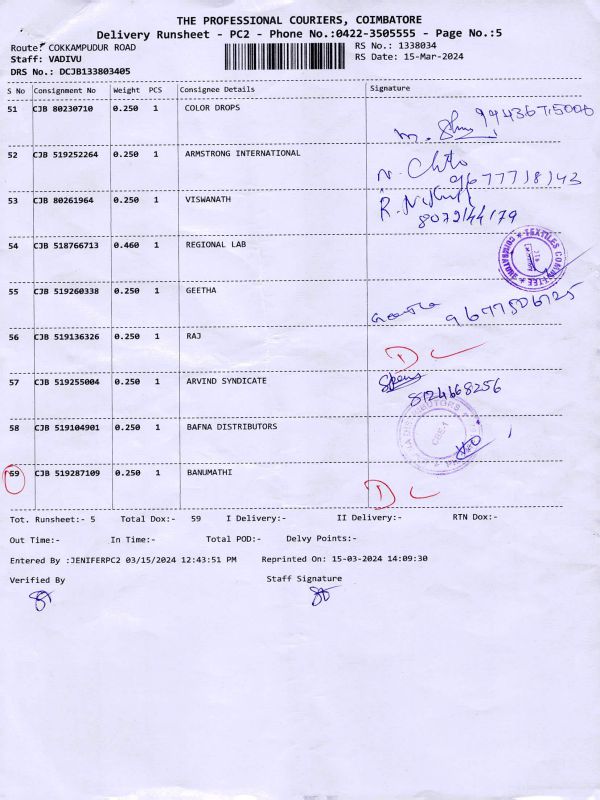 THE PROFESSIONAL COURIERS, COIMBATORE
Delivery Runsheet - PC2 - Phone No.:0422-3505555 - Page No.:5
Route: COKKAMPUDUR ROAD RS No.: 1338034
Staff: VADIVU RS Date: 15-Mar-2024
DRS No.: DCJB133803405
S No Consignment No Weight PCS Consignee Details Signature
51 CJB 80230710 0.250 1 COLOR DROPS
52 CJB 519252264 0.250 1 ARMSTRONG INTERNATIONAL 9677718143
53 CJB 80261964 0.250 1 VISWANATH 8072144179
54 CJB 518766713 0.460 1 REGIONAL LAB TEXTILES COMMITTEE * COIMBATORE *
55 CJB 519260338 0.250 1 GEETHA Geetha 9677506725
56 CJB 519136326 0.250 1 RAJ DC
57 CJB 519255004 0.250 1 ARVIND SYNDICATE 8124668256
58 CJB 519104901 0.250 1 BAFNA DISTRIBUTORS
59 CJB 519287109 0.250 1 BANUMATHI DC
Tot. Runsheet:- 5 Total Dox:- 59 I Delivery:- II Delivery:- RTN Dox:-
Out Time:- In Time:- Total POD:- Delvy Points:-
Entered By :JENIFERPC2 03/15/2024 12:43:51 PM Reprinted On: 15-03-2024 14:09:30
Verified By Staff Signature